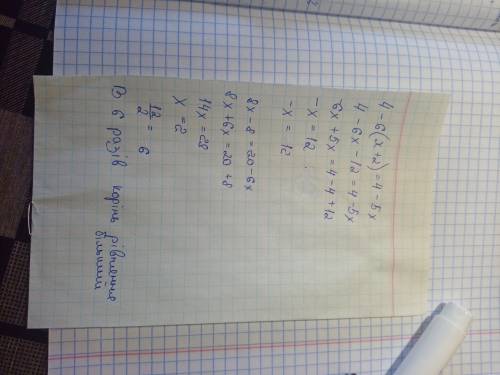 4 - 6(x + 2) = 4 - 5x
4 - 6x - 12 = 4 - 5x
-6x + 5x = 4 - 4 + 12
-x = 12
-x = 12
8x - 8 = 20 - 6x
8x + 6x = 20 + 8
14x = 28
x = 2
12/2 = 6
В 6 разів корінь рівняння
більший